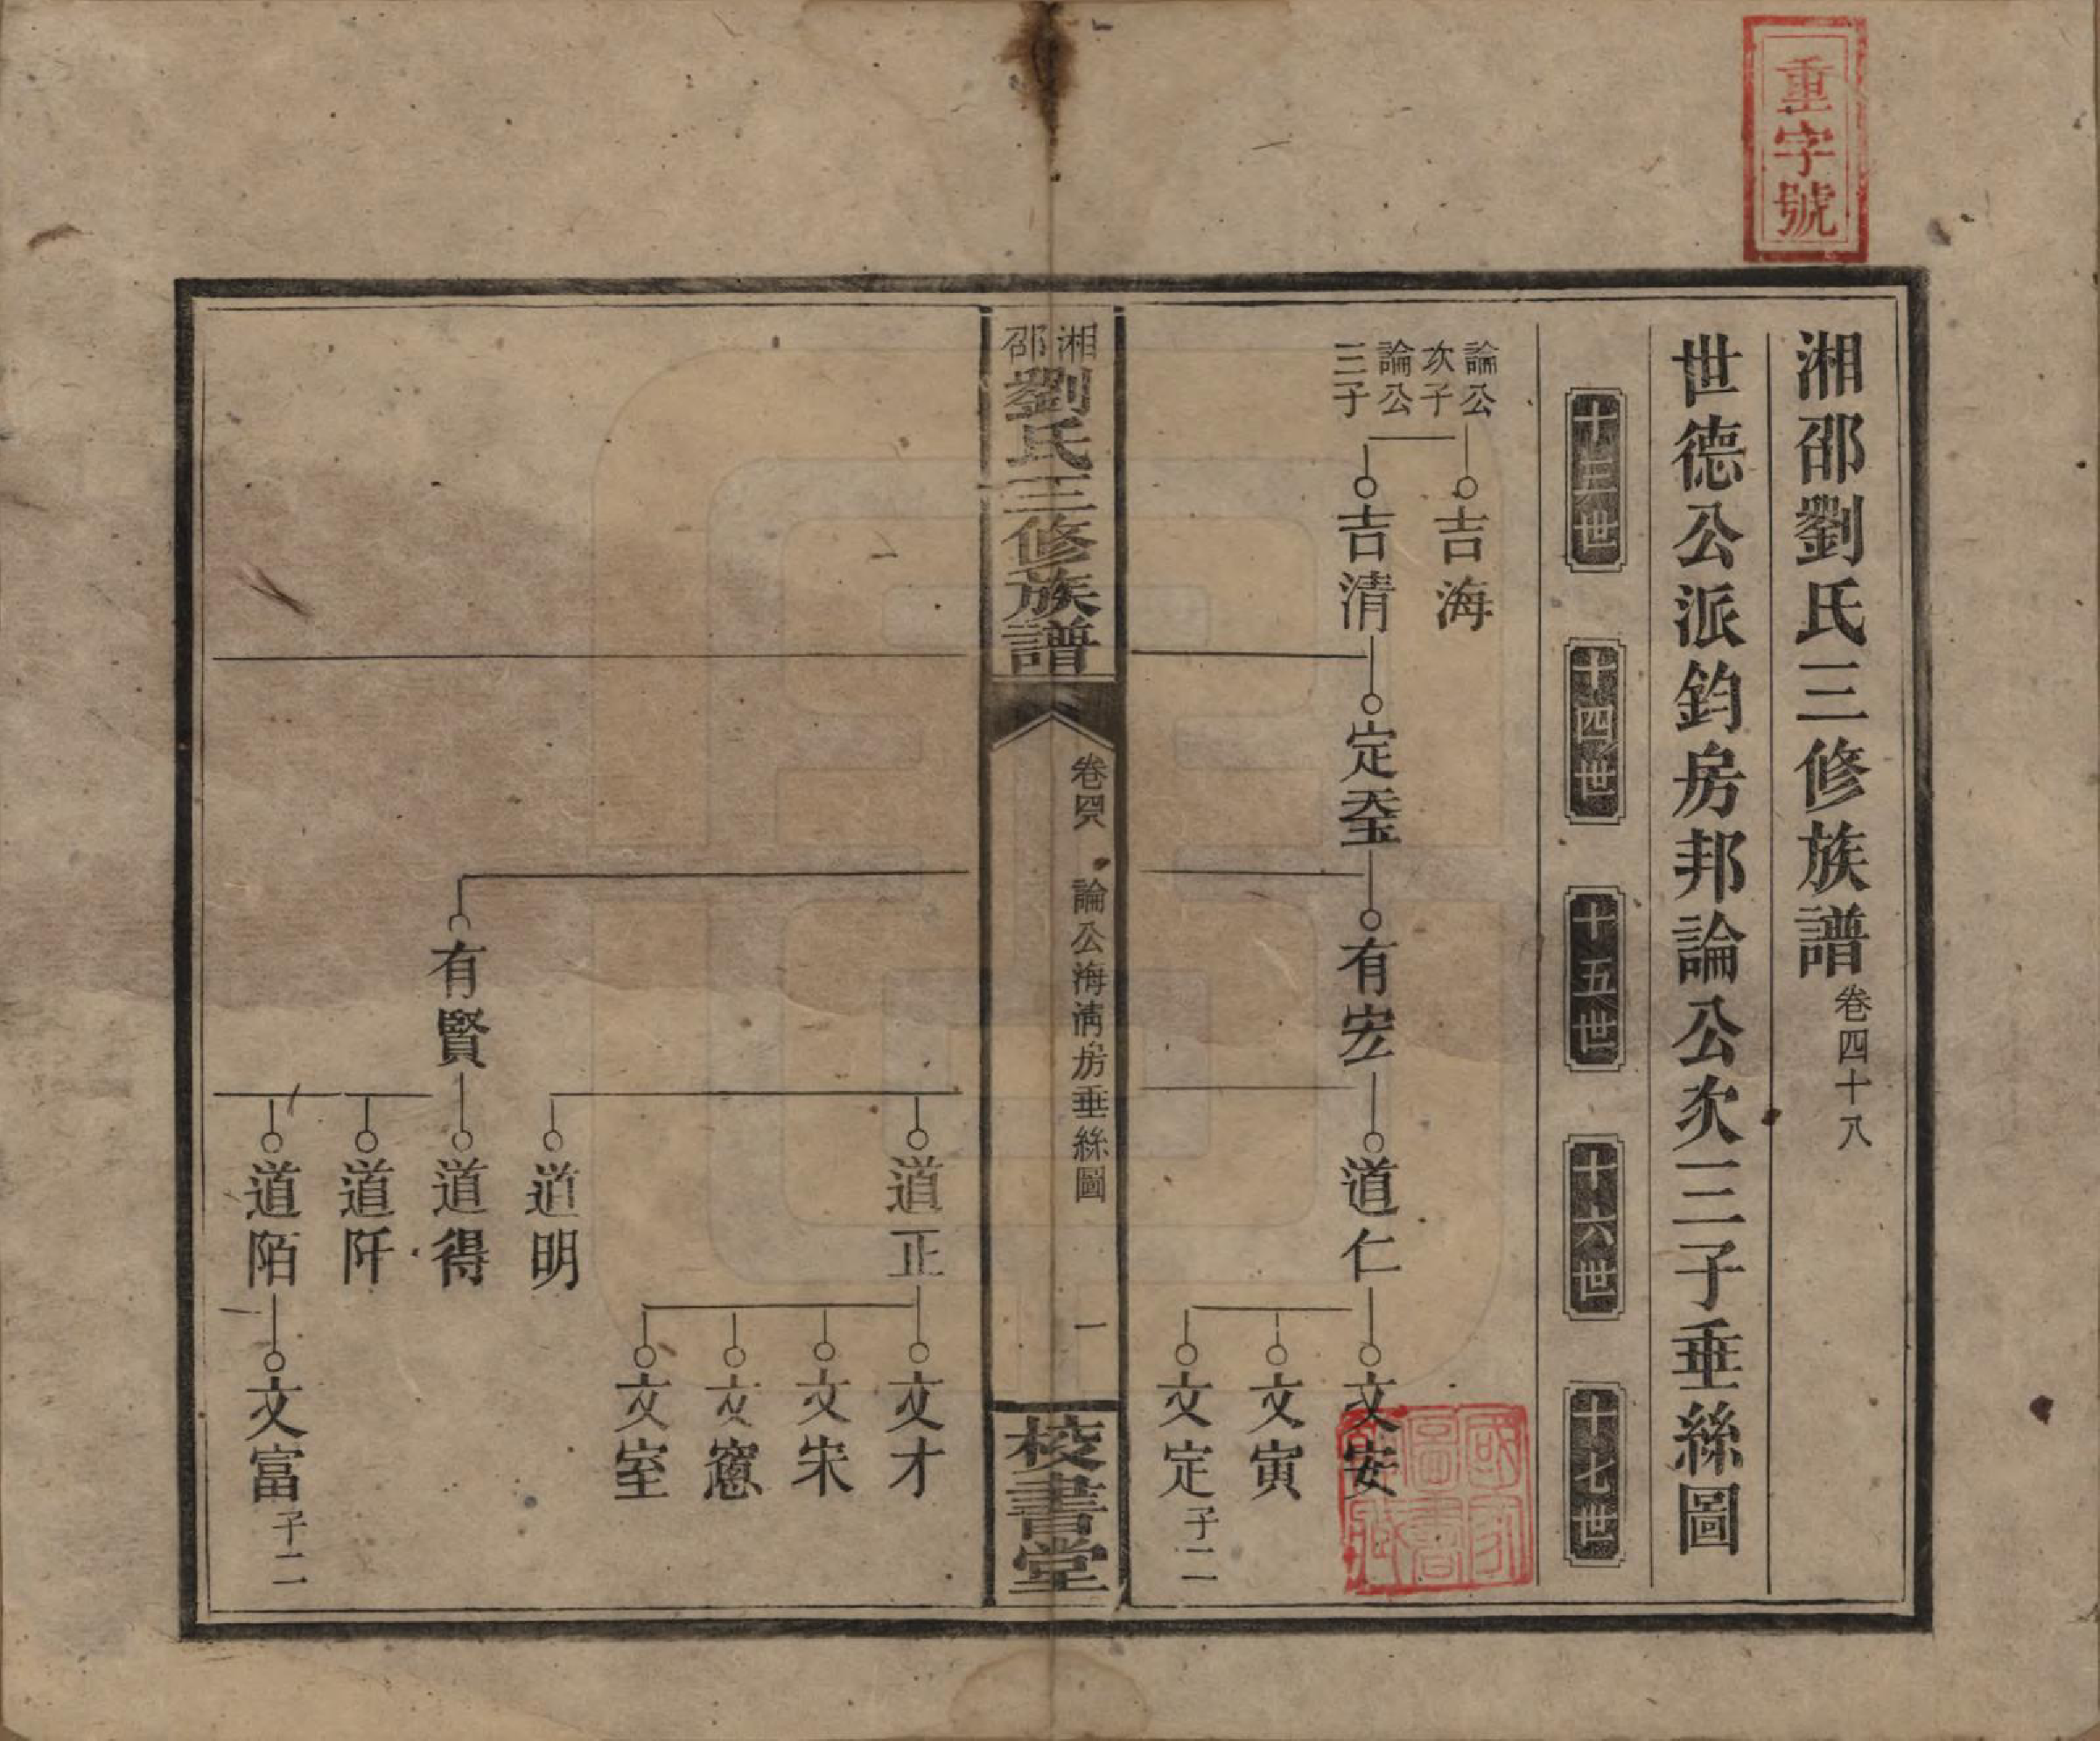 重字號
湘邵劉氏三修族譜卷四十八
世德公派鈞房邦論公次三子垂絲圖
十三世
十四世
十五世
十六世
十七世
論公
次子
吉海
論公
三子
吉清
定
有宏
道仁
文安
文寅
文定子二
湘邵劉氏三修族譜
卷四八
論公海清房垂絲圖
一
校書堂
道正
文才
文宋
文窻
文室
道明
有賢
道得
道阡
道陌
文富子二
國家圖書